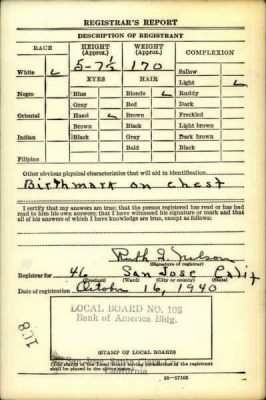 REGISTRAR'S REPORT
DESCRIPTION OF REGISTRANT
RACE
HEIGHT (Approx.)
WEIGHT (Approx.)
COMPLEXION
5-7½
170
White ✓
EYES
HAIR
Sallow
Light ✓
Negro
Blue
Blonde ✓
Ruddy
Gray
Red
Dark
Oriental
Hazel ✓
Brown
Freckled
Brown
Black
Light brown
Indian
Black
Gray
Dark brown
Bald
Black
Filipino
Other obvious physical characteristics that will aid in identification
Birthmark on chest
I certify that my answers are true; that the person registered has read or has
had read to him his own answers; that I have witnessed his signature or mark and that
all of his answers of which I have knowledge are true, except as follows:
Ruth I. Nelson
(Signature of registrar)
Registrar for 46 San Jose Calif
(Precinct) (Ward) (City or county) (State)
Date of registration October 16, 1940
LOCAL BOARD NO. 108
Bank of America Bldg.
108
(STAMP OF LOCAL BOARD)
(The stamp of the Local Board having jurisdiction of the registrant
shall be placed in the above space.)
California